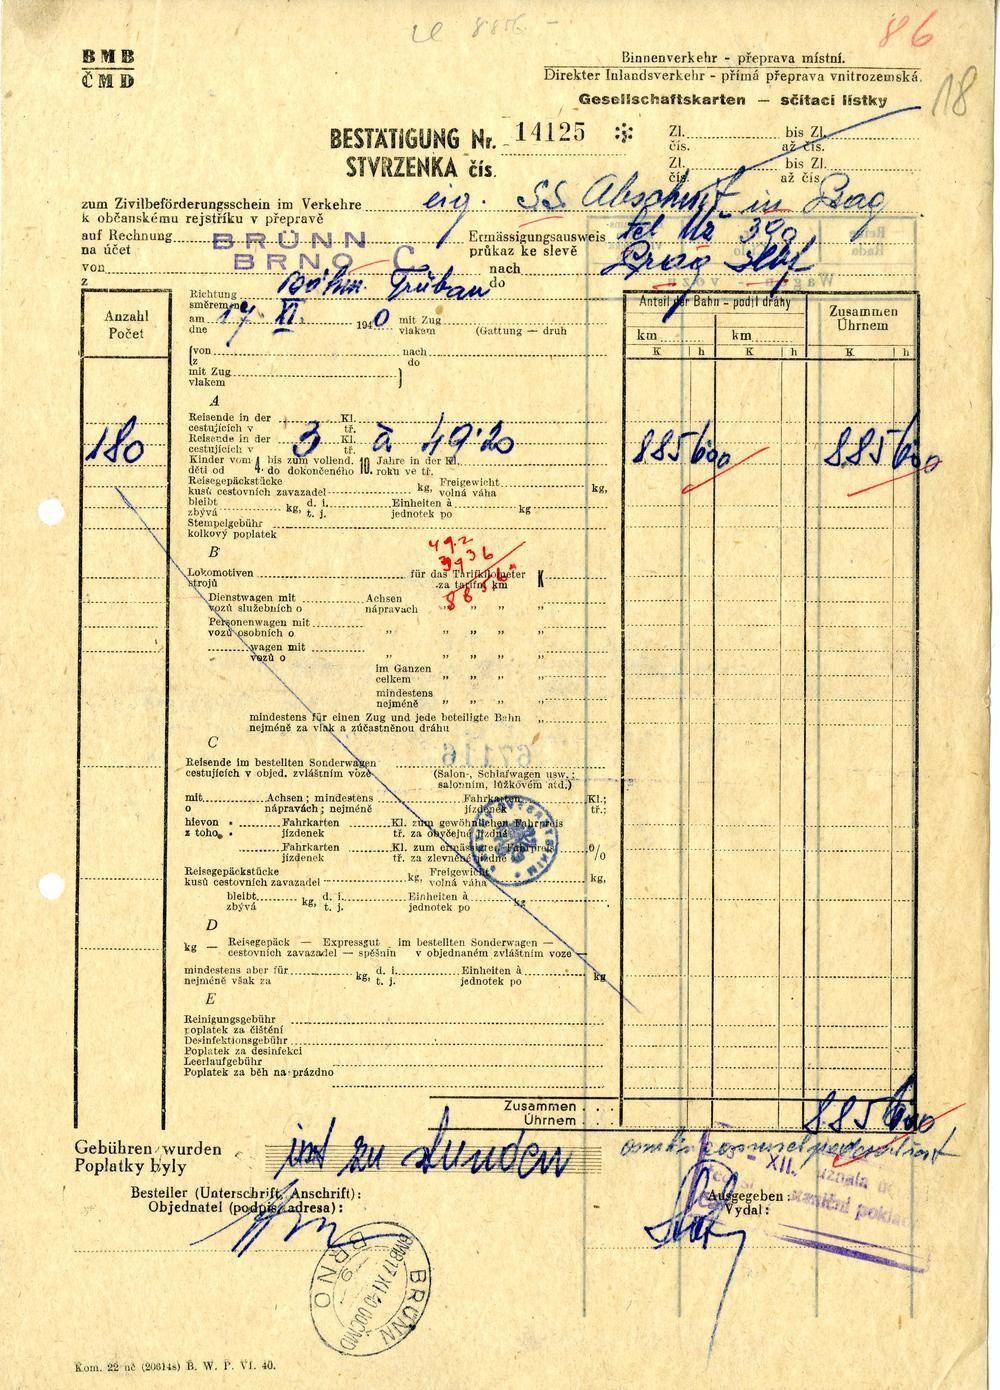 86
18
BMB
ČMD
Binnenverkehr - přeprava místní.
Direkter Inlandsverkehr - přímá přeprava vnitrozemská.
Gesellschaftskarten — sčítací lístky
BESTÄTIGUNG Nr. 14125
STVRZENKA čís.
Zl. bis Zl.
čís. až čís.
Zl. bis Zl.
čís. až čís.
zum Zivilbeförderungsschein im Verkehre eig. SS Abschnitt in Prag
k občanskému rejstříku v přepravě
auf Rechnung BRÜNN Ermässigungsausweis
na účet BRNO C průkaz ke slevě
von nach Prag
z Böhm. Trübau do
Richtung
směrem na
am 17 XI. 1940 mit Zug
dne vlakem (Gattung - druh
von nach
z do
mit Zug
vlakem
Anzahl
Počet
Anteil der Bahn - podíl dráhy
km km
K h K h
Zusammen
Úhrnem
K h
A
Reisende in der Kl.
cestujících v tř.
180 Reisende in der 3 Kl. à 49·20 8856 00 8856 00
cestujících v tř.
Kinder vom 4. bis zum vollend. 10. Jahre in der Kl.
děti od 4. do dokončeného 10. roku ve tř.
Reisegepäckstücke kg, Freigewicht kg,
kusů cestovních zavazadel volná váha
bleibt kg, d. i. Einheiten à kg
zbývá t. j. jednotek po
Stempelgebühr
kolkový poplatek
B
49.2
3936
8856
Lokomotiven für das Tarifkilometer K
strojů za tarifní km
Dienstwagen mit Achsen
vozů služebních o nápravách „ „ „ „
Personenwagen mit
vozů osobních o „ „ „ „ „
wagen mit
vozů o „ „ „ „ „
im Ganzen
celkem „ „ „ „
mindestens
nejméně „ „ „ „
mindestens für einen Zug und jede beteiligte Bahn „
nejméně za vlak a zúčastněnou dráhu
C
Reisende im bestellten Sonderwagen
cestujících v objed. zvláštním voze (Salon-, Schlafwagen usw.;
salonním, lůžkovém atd.)
mit Achsen; mindestens Fahrkarten Kl.;
o nápravách; nejméně jízdenek tř.;
hievon • Fahrkarten Kl. zum gewöhnlichen Fahrpreis
z toho • jízdenek tř. za obyčejné jízdné
Fahrkarten Kl. zum ermässigten Fahrpreis %
jízdenek tř. za zlevněné jízdné
Reisegepäckstücke kg, Freigewicht kg,
kusů cestovních zavazadel volná váha
bleibt kg, d. i. Einheiten à kg
zbývá t. j. jednotek po
D
kg — Reisegepäck — Expressgut im bestellten Sonderwagen —
cestovních zavazadel — spěšnin v objednaném zvláštním voze —
mindestens aber für kg, d. i. Einheiten à kg
nejméně však za t. j. jednotek po
E
Reinigungsgebühr
poplatek za čištění
Desinfektionsgebühr
Poplatek za desinfekci
Leerlaufgebühr
Poplatek za běh na prázdno
Zusammen
Úhrnem 8856 00
Gebühren wurden ist zu stunden
Poplatky byly
XII.
Besteller (Unterschrift, Anschrift):
Objednatel (podpis, adresa):
Ausgegeben:
Vydal:
BRÜNN
BRNO
Kom. 22 nč (20614s) B. W. P. VI. 40.